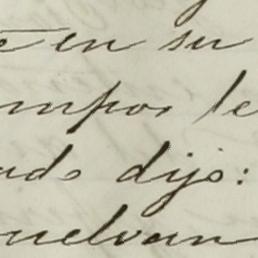 e en su
mpos le
ado dijo:
uelvan